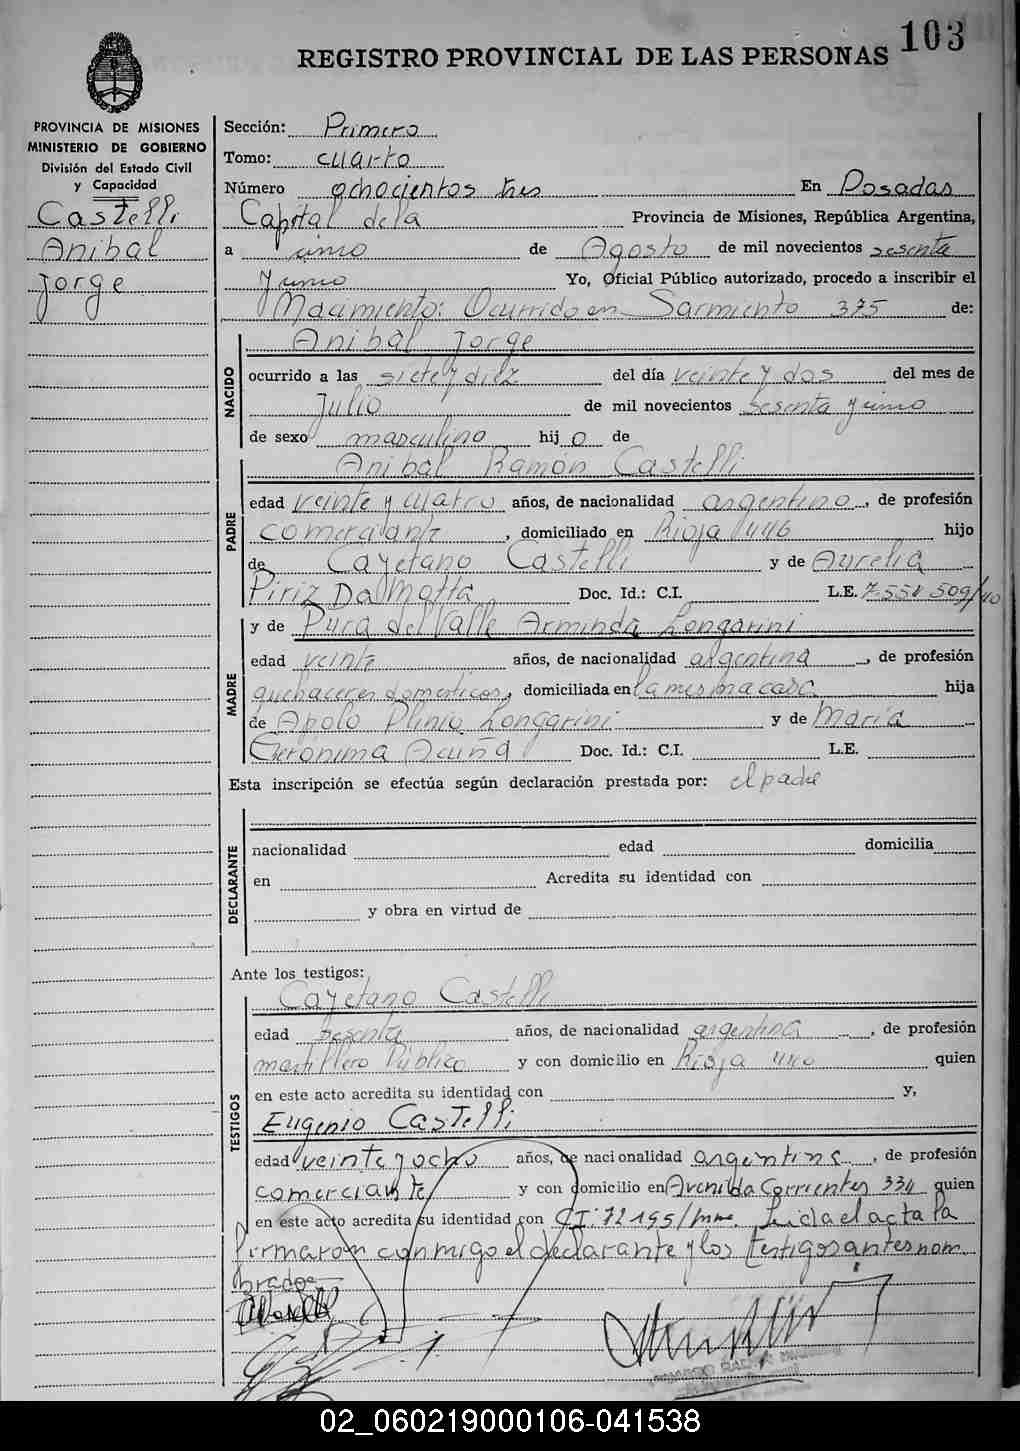 103
REGISTRO PROVINCIAL DE LAS PERSONAS
PROVINCIA DE MISIONES
MINISTERIO DE GOBIERNO
División del Estado Civil
y Capacidad
Castelli
Anibal
Jorge
Sección: Primero
Tomo: cuarto
Número ochocientos tres En Posadas
Capital de la Provincia de Misiones, República Argentina,
a uno de Agosto de mil novecientos sesenta
y uno Yo, Oficial Público autorizado, procedo a inscribir el
Nacimiento: Ocurrido en Sarmiento 375 de:
NACIDO
Anibal Jorge
ocurrido a las siete y diez del día veinte y dos del mes de
Julio de mil novecientos sesenta y uno
de sexo masculino hij o de
PADRE
Anibal Ramón Castelli
edad veinte y cuatro años, de nacionalidad argentino, de profesión
comerciante, domiciliado en Rioja 446 hijo
de Cayetano Castelli y de Aurelia
Piriz Da Motta Doc. Id.: C.I. L.E. 7.551.509/40
MADRE
y de Pura del Valle Arminda Longarini
edad veinte años, de nacionalidad argentina, de profesión
quehaceres domesticos, domiciliada en la misma casa hija
de Apolo Plinio Longarini y de María
Gerónima Acuña Doc. Id.: C.I. L.E.
Esta inscripción se efectúa según declaración prestada por: el padre
DECLARANTE
nacionalidad edad domicilia
en Acredita su identidad con
y obra en virtud de
Ante los testigos:
TESTIGOS
Cayetano Castelli
edad sesenta años, de nacionalidad argentina, de profesión
martillero Público y con domicilio en Rioja 440 quien
en este acto acredita su identidad con y,
Eugenio Castelli
edad veinte y ocho años, de nacionalidad argentina, de profesión
comerciante y con domicilio en Avenida Corrientes 334 quien
en este acto acredita su identidad con CI: 72195/mne. Leida el acta la
firmaron conmigo el declarante y los testigos antes nom
brados
02_060219000106-041538